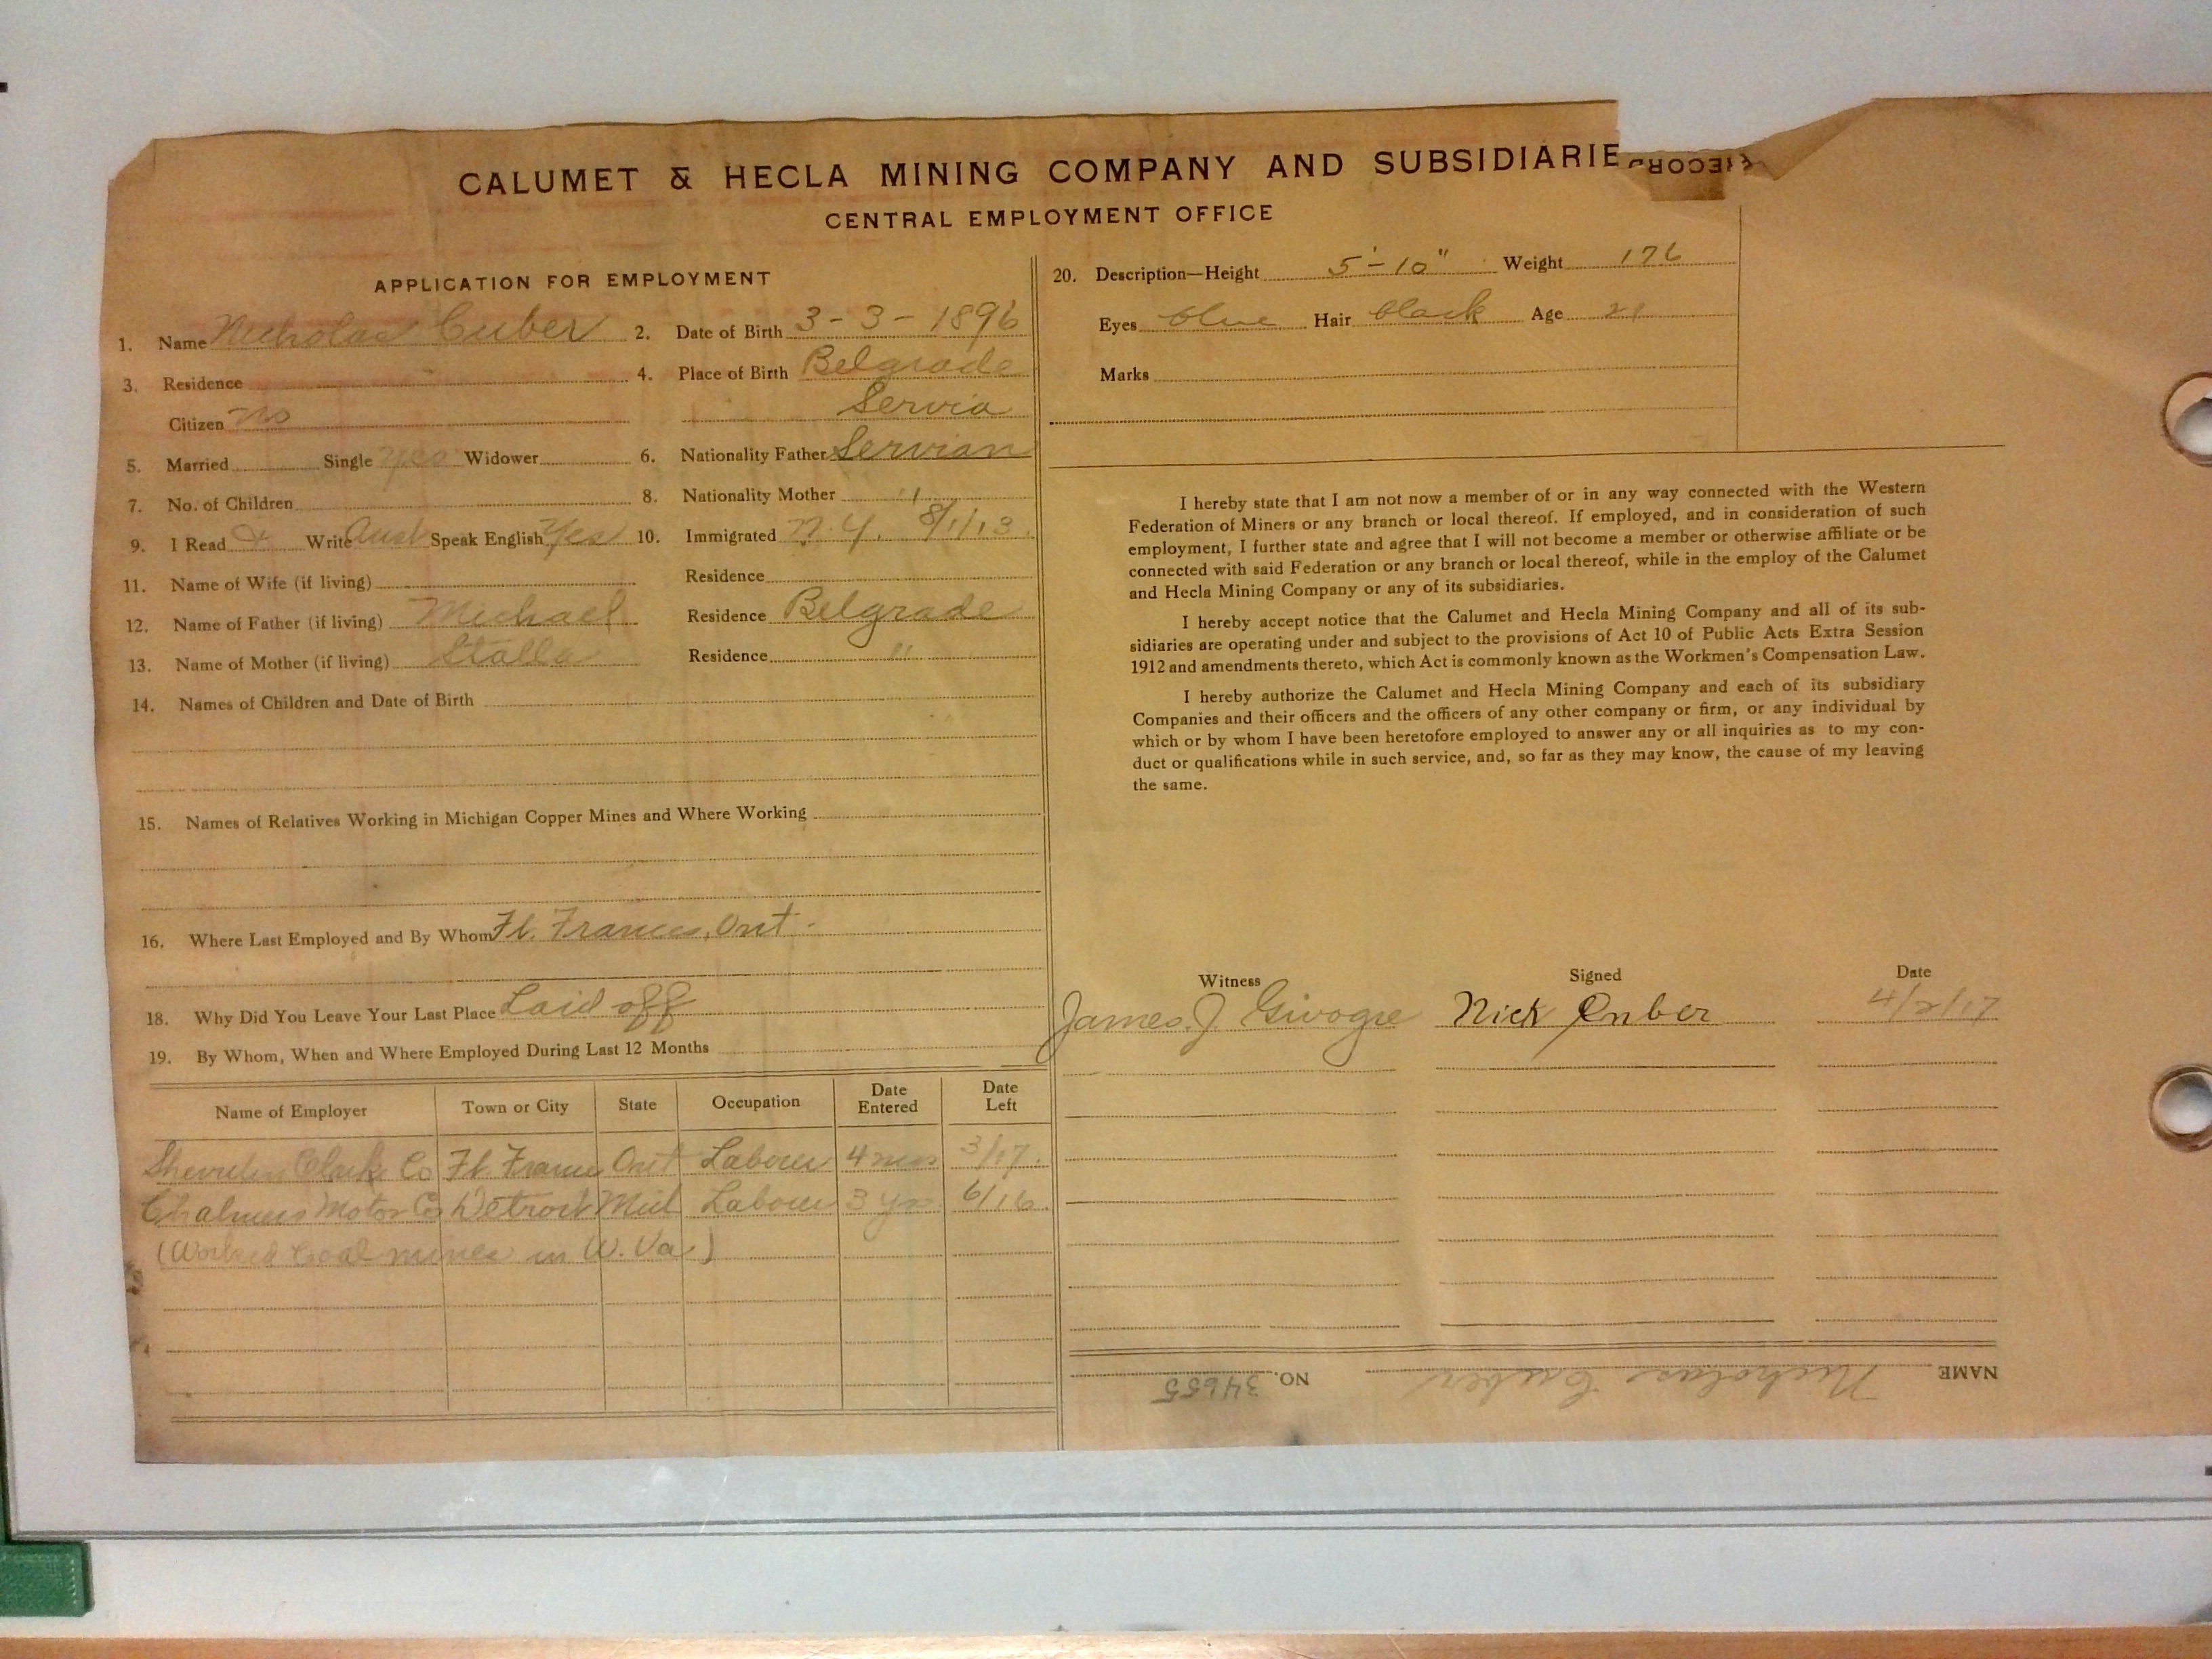 CALUMET & HECLA MINING COMPANY AND SUBSIDIARIE
RECOR
CENTRAL EMPLOYMENT OFFICE
APPLICATION FOR EMPLOYMENT
1. Name Nicholas Cuber 2. Date of Birth 3-3-1896
3. Residence 4. Place of Birth Belgrade
Citizen no Servia
5. Married Single yes Widower 6. Nationality Father Servian
7. No. of Children 8. Nationality Mother "
9. I Read & Write Aust Speak English Yes 10. Immigrated N.Y. 8/1/13.
11. Name of Wife (if living) Residence
12. Name of Father (if living) Michael Residence Belgrade
13. Name of Mother (if living) Stalla Residence "
14. Names of Children and Date of Birth
15. Names of Relatives Working in Michigan Copper Mines and Where Working
16. Where Last Employed and By Whom Ft. Frances, Ont.
18. Why Did You Leave Your Last Place Laid off
19. By Whom, When and Where Employed During Last 12 Months
Name of Employer Town or City State Occupation Date Entered Date Left
Shevlin Clark Co Ft. Frances Ont Laborer 4 mos 3/17.
Chalmers Motor Co Detroit Mich Laborer 3 yrs. 6/16.
(Worked Coal mines in W. Va.)
20. Description—Height 5'-10" Weight 176
Eyes blue Hair black Age 21
Marks
I hereby state that I am not now a member of or in any way connected with the Western
Federation of Miners or any branch or local thereof. If employed, and in consideration of such
employment, I further state and agree that I will not become a member or otherwise affiliate or be
connected with said Federation or any branch or local thereof, while in the employ of the Calumet
and Hecla Mining Company or any of its subsidiaries.
I hereby accept notice that the Calumet and Hecla Mining Company and all of its sub-
sidiaries are operating under and subject to the provisions of Act 10 of Public Acts Extra Session
1912 and amendments thereto, which Act is commonly known as the Workmen's Compensation Law.
I hereby authorize the Calumet and Hecla Mining Company and each of its subsidiary
Companies and their officers and the officers of any other company or firm, or any individual by
which or by whom I have been heretofore employed to answer any or all inquiries as to my con-
duct or qualifications while in such service, and, so far as they may know, the cause of my leaving
the same.
Witness Signed Date
James J. Givogre Nick Cuber 4/2/17
NAME Nicholas Cuber NO. 34655